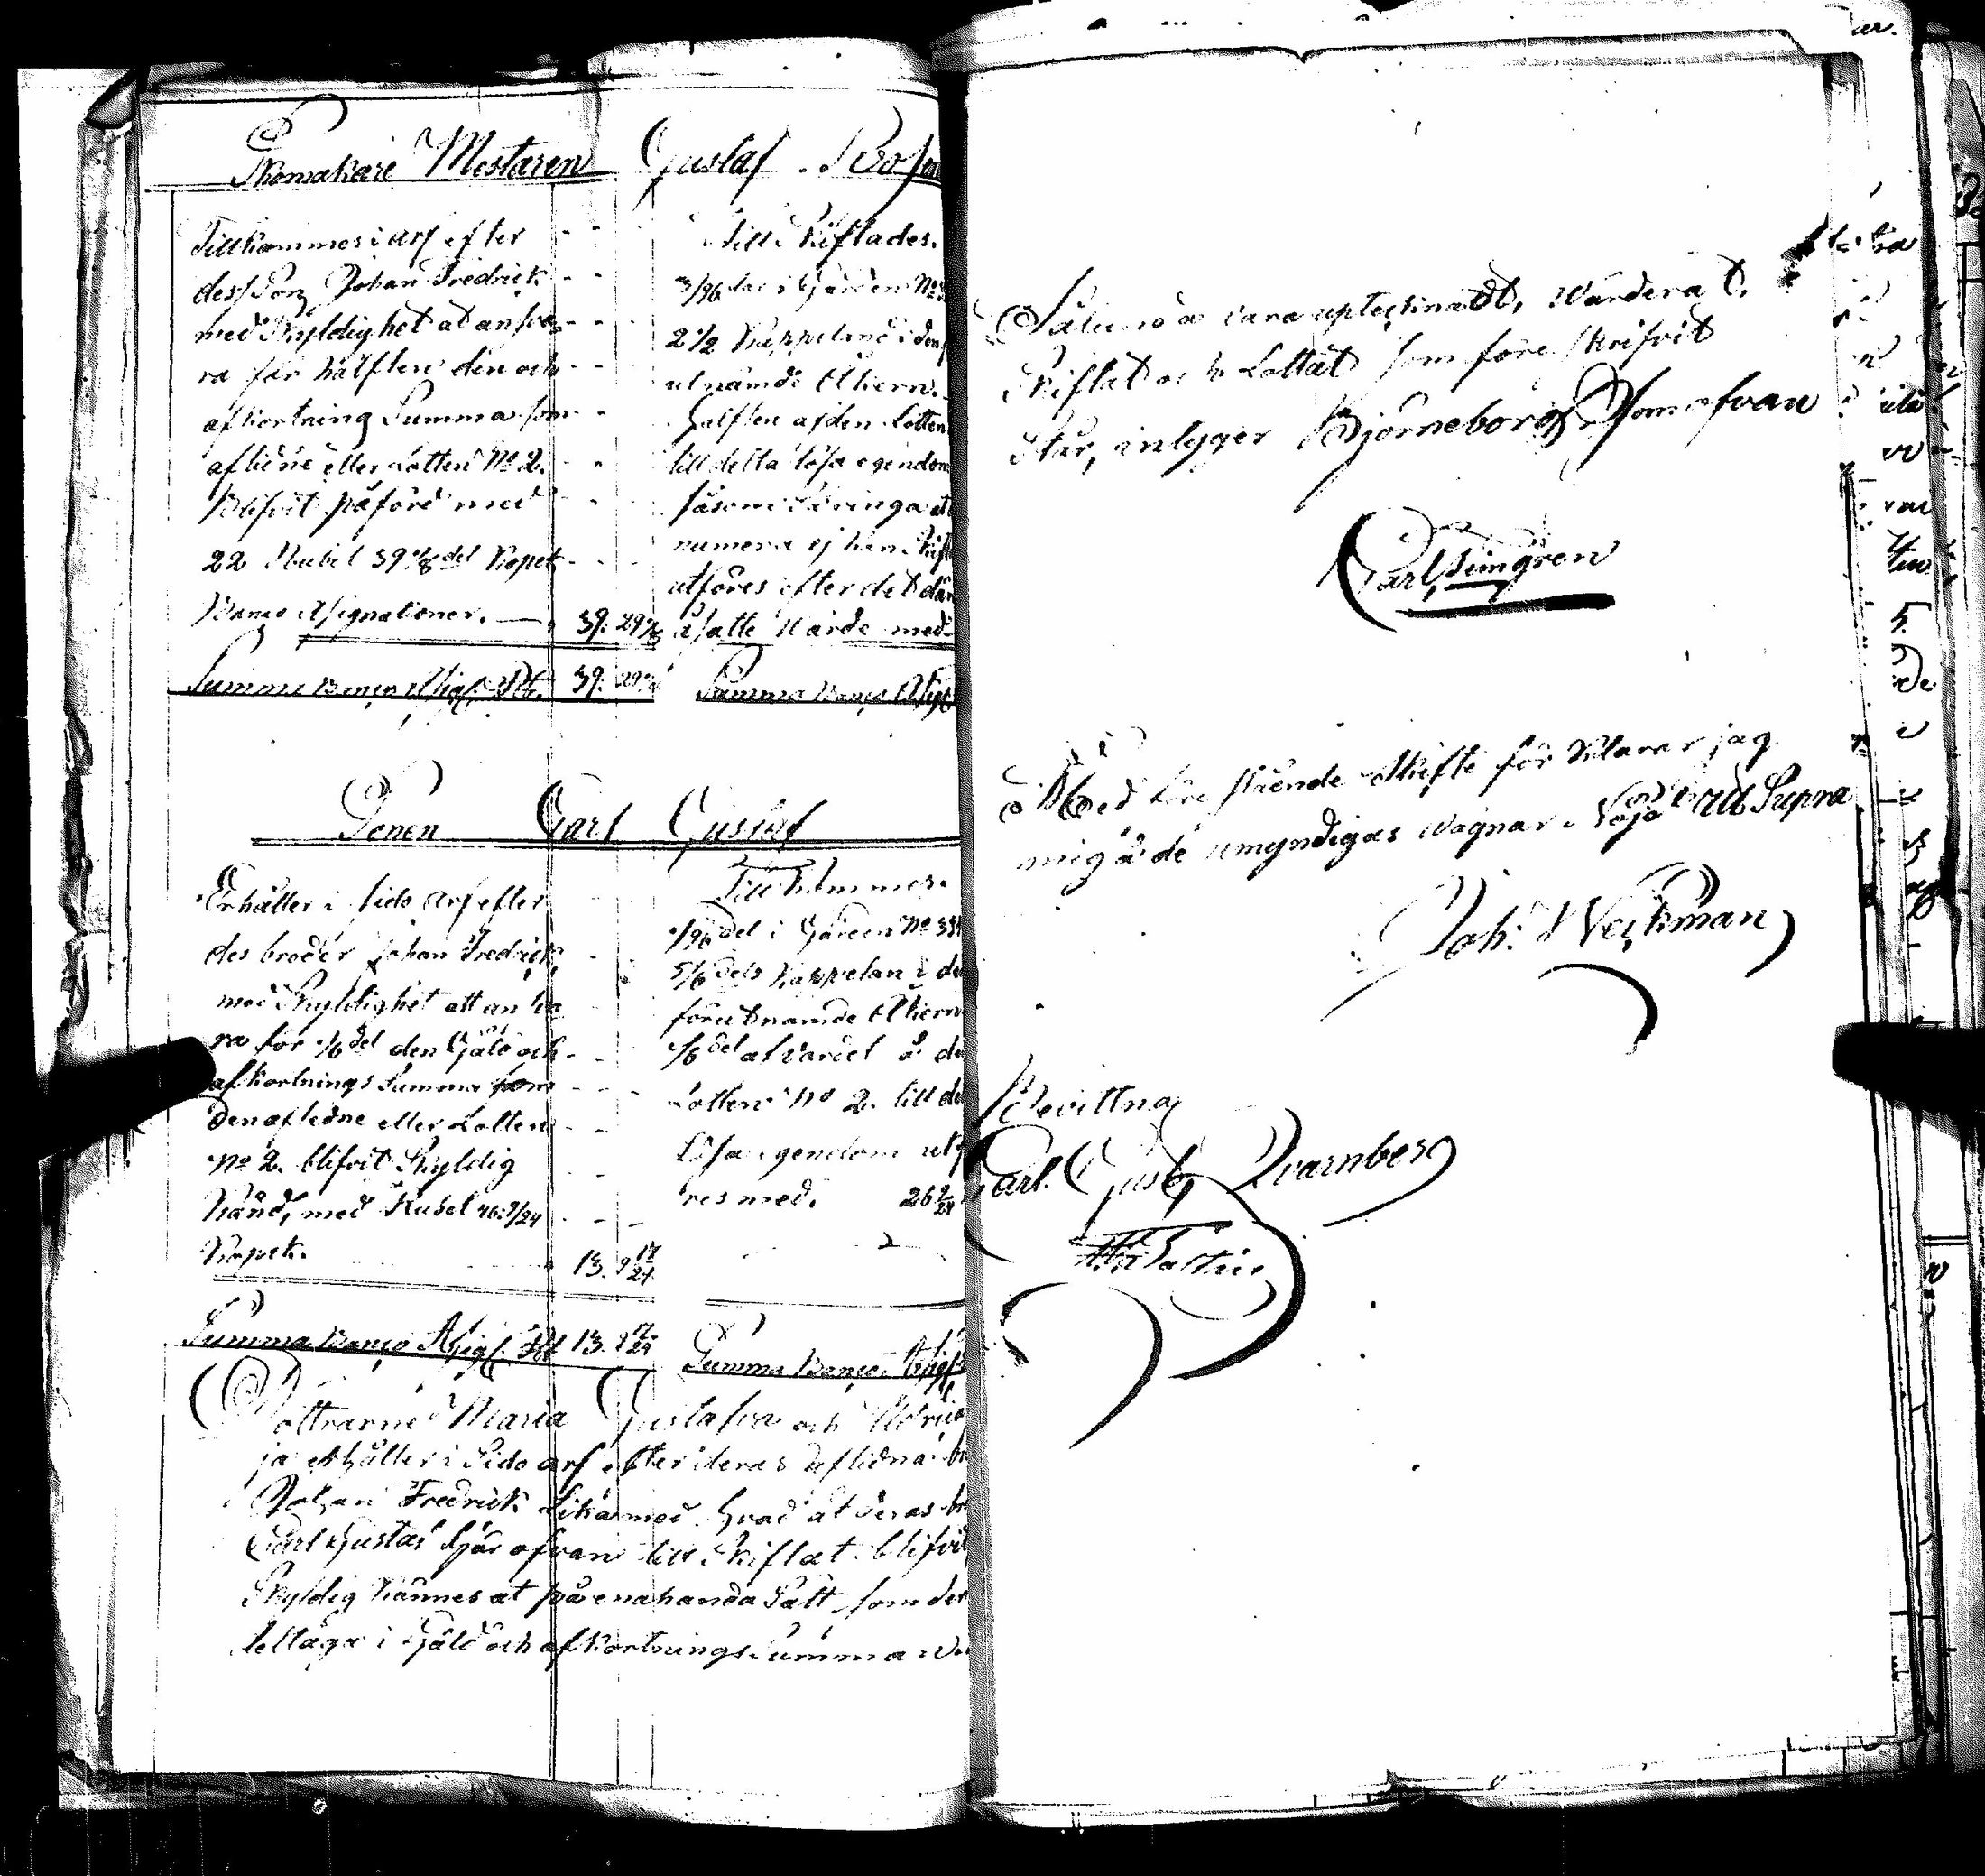 Skomakare Mästaren Gustaf
Tillkommes i arf efter
dess Son Johan Fredrick
med Skyldighet at ansva-
ra för hälften den och
afkortning Summa som
aflidne eller Lotten No 2.
blifvit påförd med
22 Rubel 39 1/8 del Kopek
Banco Assignationer. 39. 29
Summa Banco Assig. Rb. 39. 29
till Skiftades.
3/96 delar i Gården No
2 1/2 Kappeland i den
utnämde Åkern.
Hälften af den Lotten
till delta lösa egendom
såsom Säringa at
numera ej kan Skift
utföres efter det då
åsatte Värde med
Summa Banco Assig
Sonen Carl Gustaf
Erhåller i Sido arf efter
des broder Johan Fredrick,
med Skyldighet att ansva
ra för 1/6 del den Gäld och
afkortnings Summa som
den afledne eller Lotten
No 2. blifvit Skyldig
Känd, med Rubel 46: 9/24
Kopek. 13. 9 17/24
Summa Banco Assig. Rbl 13. 9 17/24
Tillkommes.
1/96 del i Gården No 334
5/6 dels Kappelan i de
förutnämde Åkern
1/6 del af Värdet å de
Lotten No 2. till de
Lösa egendom utf
res med. 26 9/24
Summa Banco Assig
Döttrarne Maria Gustafva och Ulrica
ja erhåller i Sido arf efter deras aflidna br
Johan Fredrick Lika med hvad åt deras br
Carl Gustaf här ofvan till Skiftat blifvit
Skyldig Kännes at på enahanda Sätt som det
deltaga i Gäld och afkortnings Summa
Sålunda vara uptecknadt, Värderat,
Skiftat och Lottat som före skrifvit
Står, intyger Björneborg Som ofvan
Carl Limgren
Med före stående Skifte för Klarar jag
mig å de omyndigas Vägnar Nöjd Ut Supra
Joh: Weckman
Bevittna
Carl Gust. Qvarnberg